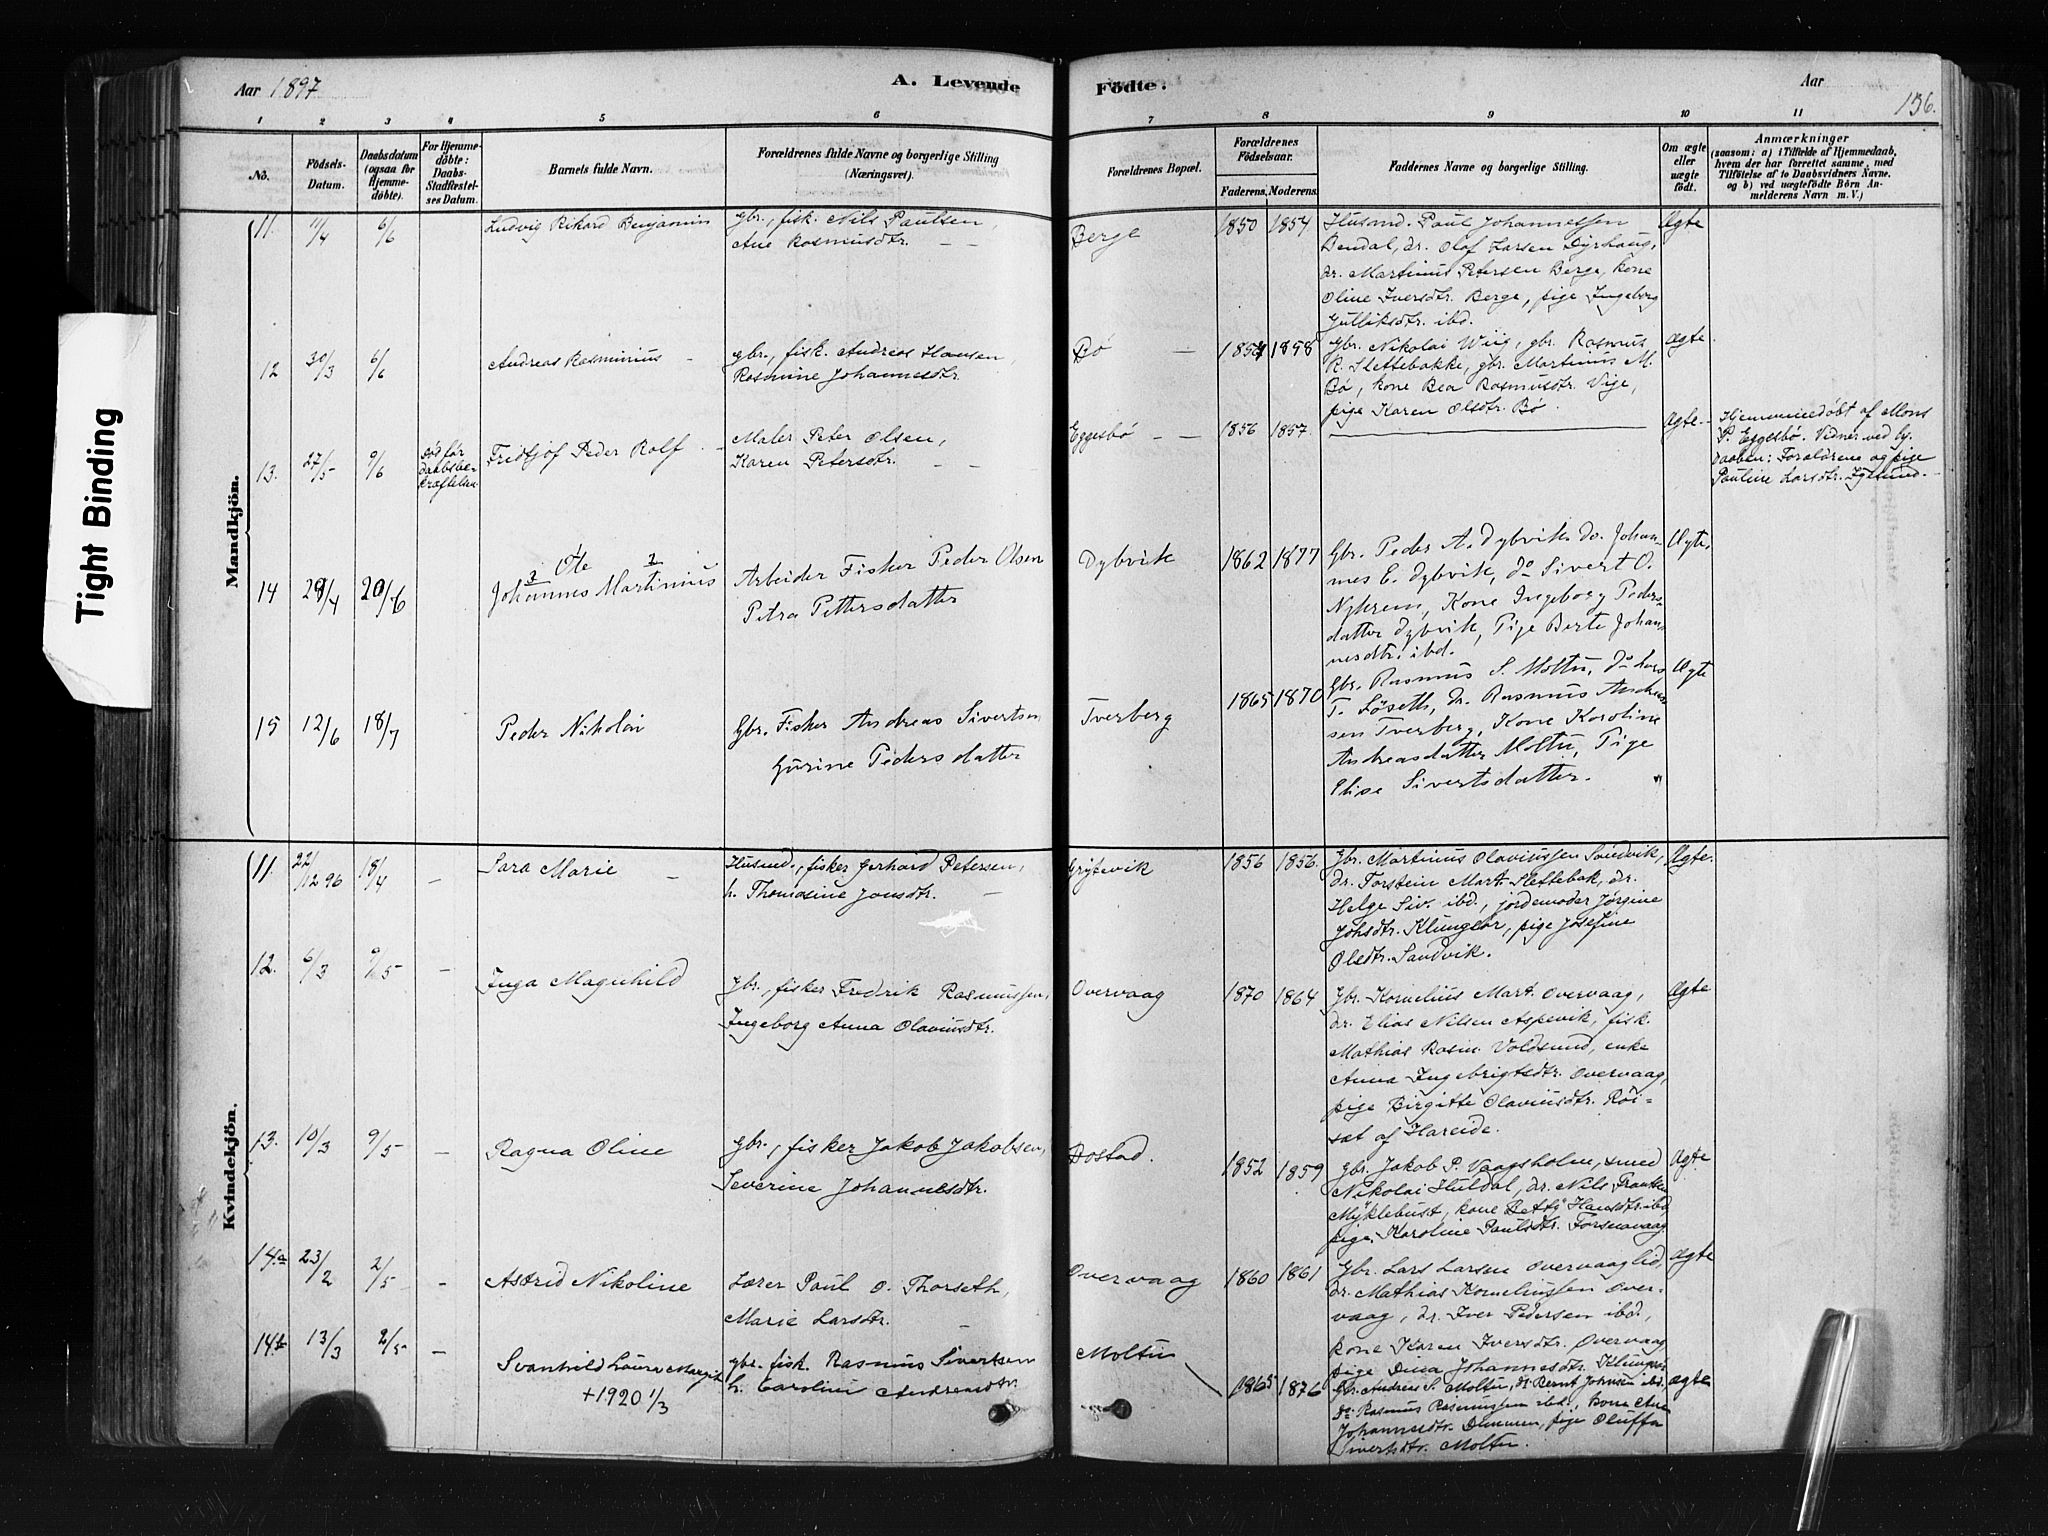 Aar 1897
A. Levende
Födte.
Aar
156.
1 2 3 4 5 6 7 8 9 10 11
No.
Födsels-
Datum.
Daabsdatum
(ogsaa for
Hjemme-
döbte).
For Hjemme-
døbte:
Daabs-
Stadfæstel-
ses Datum.
Barnets fulde Navn.
Forældrenes fulde Navne og borgerlige Stilling
(Næringsvei).
Forældrenes Bopæl.
Forældrenes
Födselsaar.
Faderens. Moderens.
Faddernes Navne og borgerlige Stilling.
Om ægte
eller
uægte
født.
Anmærkninger
(saasom: a) i Tilfælde af Hjemmedaab,
hvem der har forrettet samme, med
Tilføielse af to Daabsvidners Navne,
og b) ved uægtefödte Börn An-
melderens Navn m. V.)
Tight Binding
Mandkjön.
11. 11/4 6/6 Ludvig Rikard Benjamin
gbr., fisk. Nils Paulsen,
Ane Rasmusdtr. – –
Berge
1850 1854
Husmd. Paul Johannessen
Bendal, do. Olaf Larsen Dyrhaug,
do. Martinus Petersen Berge, kone
Oline Iversdtr. Berge, pige Ingeborg
Gulliksdtr. ibd.
Ægte
12 30/3 6/6 Andreas Rasminius –
gbr., fisk. Andreas Hansen
Rasmine Johannesdtr.
Bø –
1854 1858
Gbr. Nikolai Wiig, gbr. Rasmus
R. Slettebakke, gbr. Martinus M.
Bø, kone Bea Rasmusdtr. Vige,
pige Karen Olsdtr. Bø.
Ægte
13. 27/5 9/6
død før
daabsbe-
kræftelsen
Fridtjof Peder Rolf –
Maler Peter Olsen,
Karen Petersdtr. – –
Eggesbø – –
1856 1857.
Ægte
Hjemmedøbt af Mons
P. Eggesbø. Vidner ved hj.
daaben: Forældrene og pige
Pauline Larsdtr. Igesund.
14 29/4 20/6
2 Ole 1
Johannes Martinius
Arbeider Fisker Peder Olsen
Petra Pettersdatter
Dybvik
1862 1877
Gbr. Peder A. Dybvik do. Johan-
nes E. Dybvik, do Sivert O.
Nykrem, Kone Ingeborg Peders-
datter Dybvik, Pige Berte Johan-
nesdtr. ibd.
Ægte
15 12/6 18/7 Peder Nikolai
Gbr. Fisker Andreas Sivertsen
Gurine Pedersdatter
Tverberg
1865 1870
Gbr. Rasmus S. Moltu, do Lars
T. Løseth, do. Rasmus Andrea-
sen Tverberg, Kone Karoline
Andreasdatter Moltu, Pige
Elise Sivertsdatter. "
Ægte
Kvindekjön.
11. 22/12 96 18/4 – Sara Marie –
Husmd., fisker Gerhard Petersen,
h. Thomasine Jonsdtr. –
Grytevik
1856 1856.
Gbr. Martinus Olaviussen Sandvik,
do. Torstein Mart. Slettebak, do.
Helge Siv. ibd., jordemoder Jørgine
Johsdtr. Klungsør, pige Josefine
Olsdtr. Sandvik.
Ægte.
12. 6/3 9/5 – Inga Magnhild
Gbr., fisker Fredrik Rasmussen,
Ingeborg Anna Olaviusdtr.
Overvaag
1870 1864
Gbr. Kornelius Mart. Overvaag,
do. Elias Nilsen Aspevik, fisk.
Mathias Rasm. Voldsund, enke
Anna Ingebrigtsdtr. Overvaag,
pige Birgitte Olaviusdtr. Røi-
sæt af Hareide.
Ægte
13. 10/3 9/5 – Ragna Oline
gbr., fisker Jakob Jakobsen,
Severine Johannesdtr.
Bostad.
1852 1859
gbr. Jakob P. Vaagsholm, smed
Nikolai Huldal, do. Nils Frantsen
Myklebust, kone Betty Hansdtr. ibd,
pige Karoline Paulsdtr. Fosnavaag
Ægte
14a 23/2 2/5 – Astrid Nikoline
Lærer Paul O. Thorseth,
Marie Larsdtr.
Overvaag
1860 1861
Gbr. Lars Larsen Overvaaglid,
do. Mathias Korneliussen Over-
vaag, do. Iver Pedersen ibd.,
kone Karen Iversdtr. Overvaag,
pige Dina Johannesdtr. Klungsør
Ægte
14b 13/3 2/5 – Svanhild Laura Margit
+1920 1/3
gbr. fisk. Rasmus Sivertsen
h. Caroline Andreasdtr.
Moltu
1865 1876
Gbr. Andreas S. Moltu, do Bernt Johnsen ibd.
do. Rasmus Rasmussen ibd., Kone Ane
Johannesdtr. Dimmen, pige Oluffa
Sivertsdtr. Moltu.
Ægte